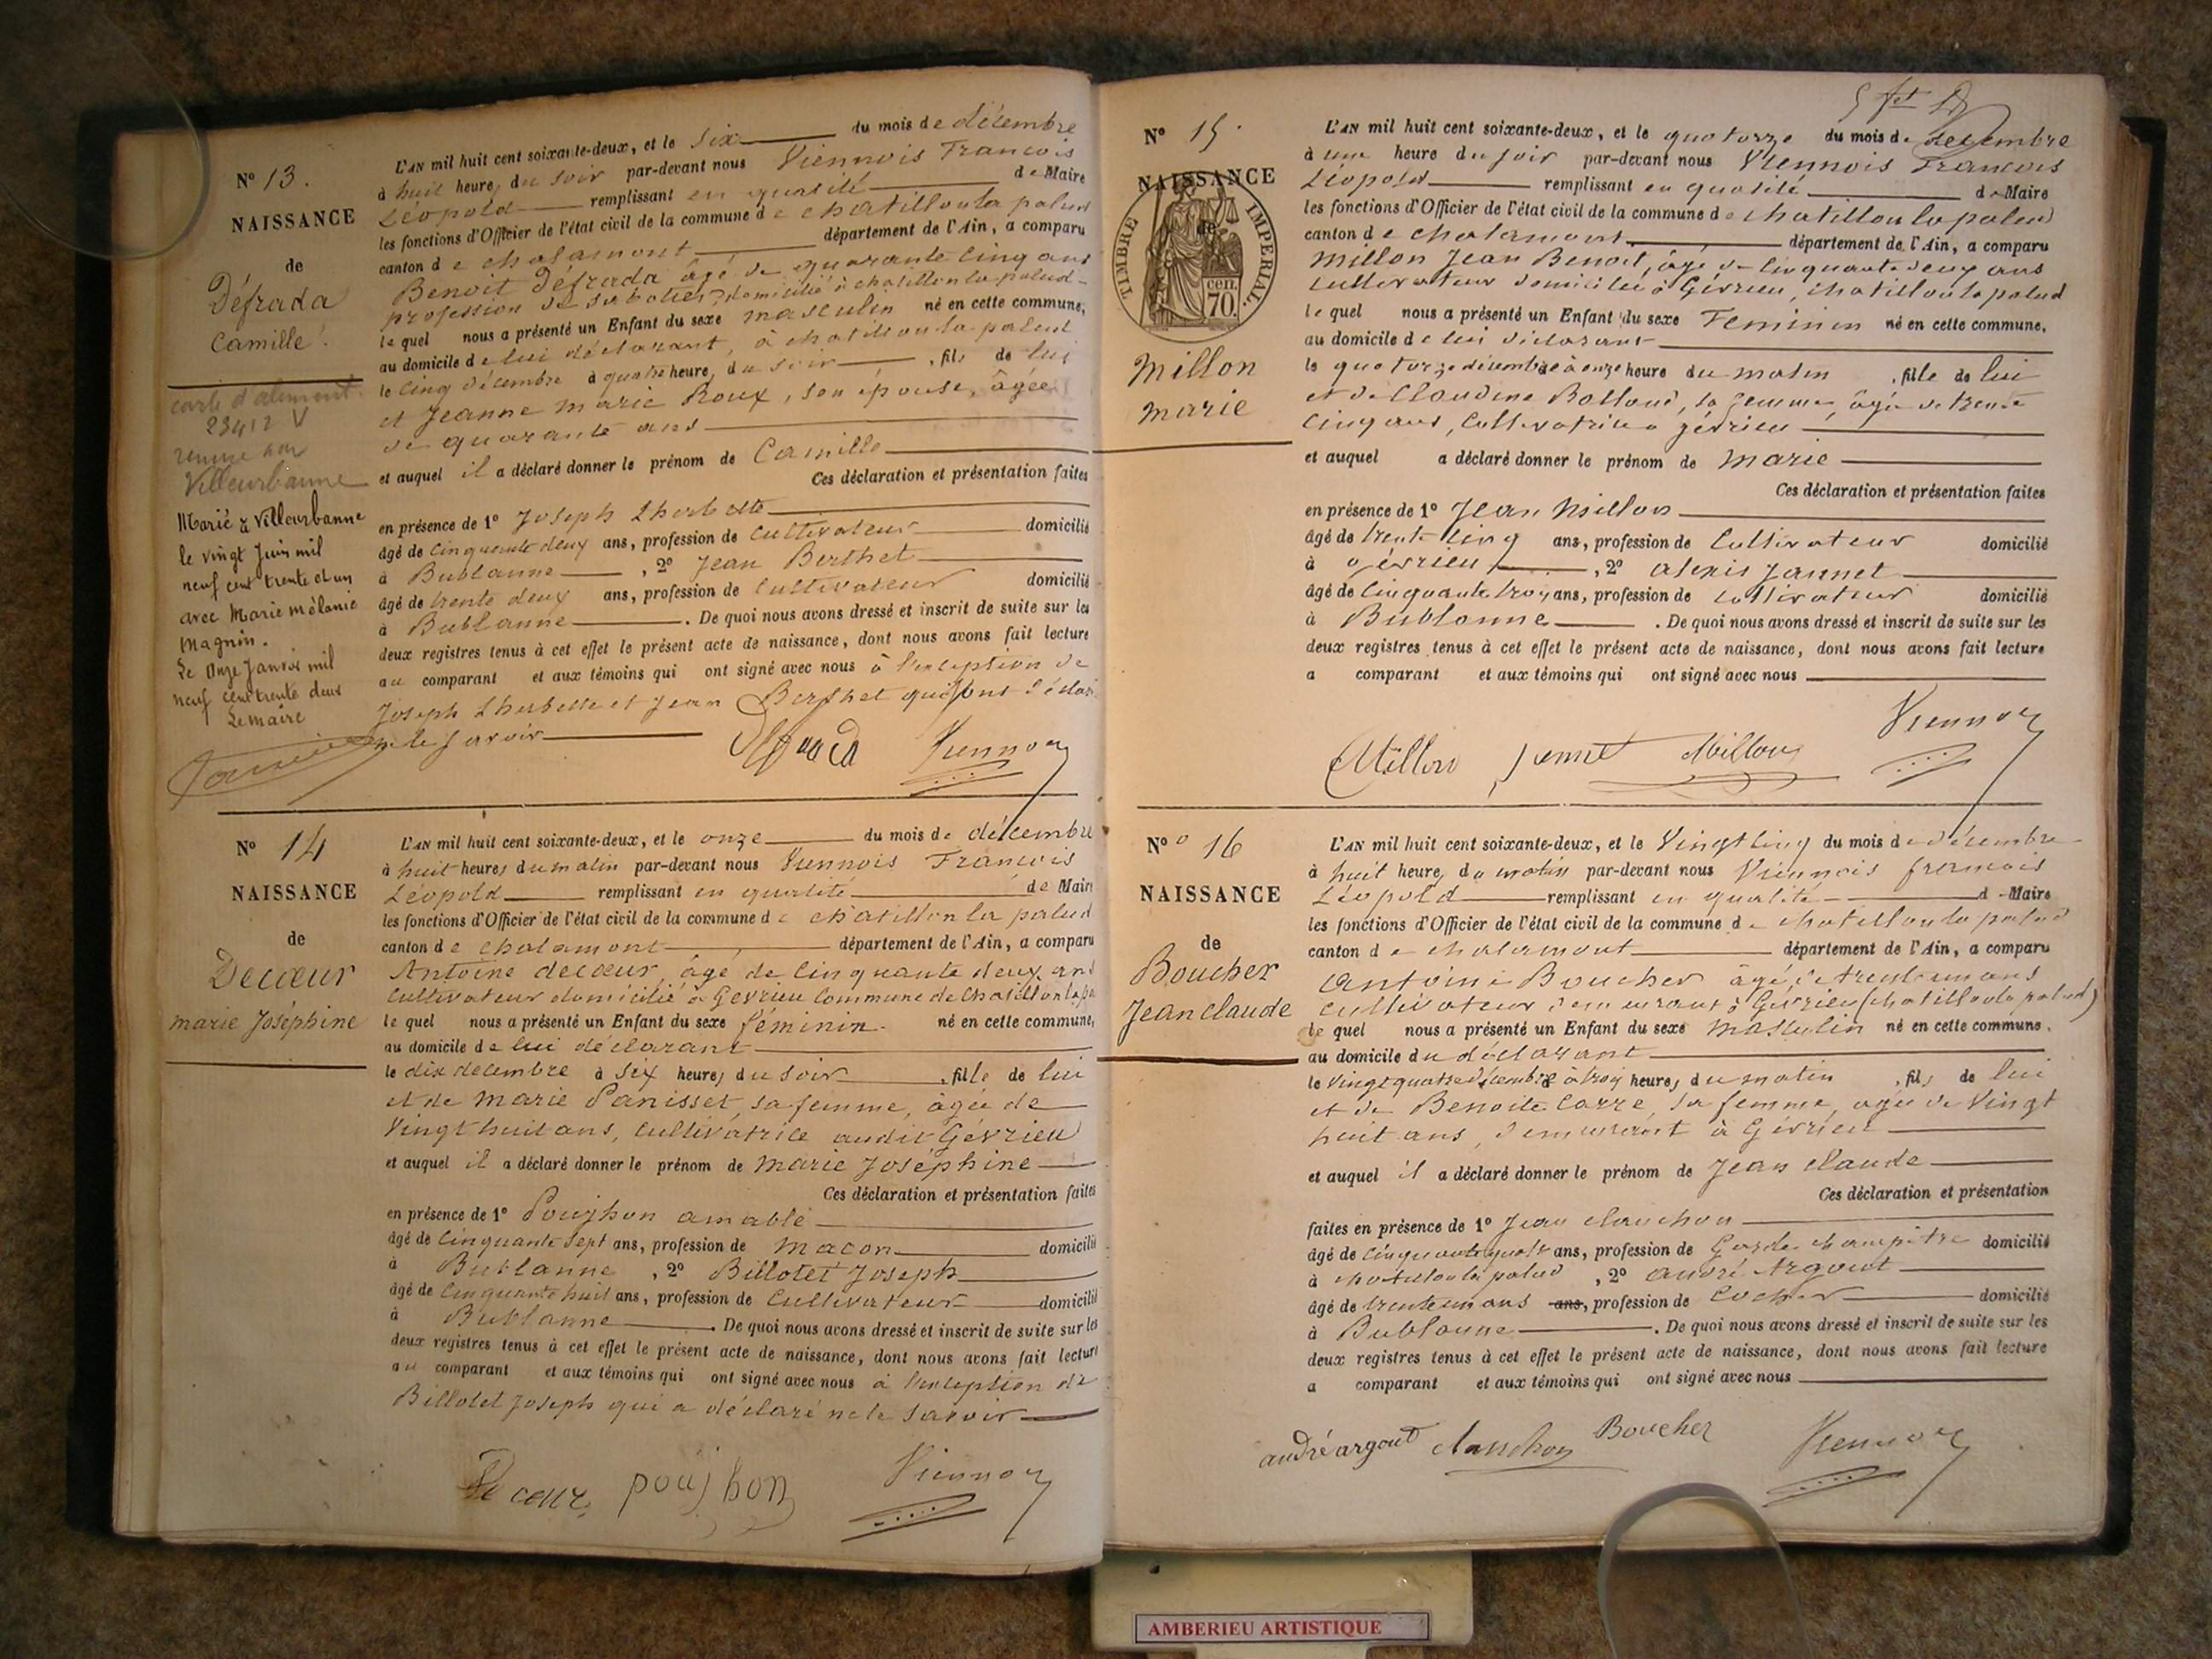 N° 13.
NAISSANCE
de
Défrada
Camille.
carte d'aliment.
23412 V
Villeurbanne
Marié à Villeurbanne
le vingt Juin mil
neuf cent trente et un
avec Marie mélanie
Magnin.
Le Onze Janvier mil
neuf cent trente deux
Le maire
L'AN mil huit cent soixante-deux, et le Six du mois de décembre
à huit heures du soir par-devant nous Viennois Francois
Léopold remplissant en qualité de Maire
les fonctions d'Officier de l'état civil de la commune de chatillon la palud
canton de chalamont département de l'Ain, a comparu
Benoit Défrada âgé de quarante cinq ans
profession de sabotier, domicilié à chatillon la palud
le quel nous a présenté un Enfant du sexe masculin né en cette commune,
au domicile de lui déclarant, à chatillon la palud
le cinq décembre à quatre heures du soir, fils de lui
et Jeanne marie Roux, son épouse, âgée
de quarante ans
et auquel il a déclaré donner le prénom de Camille
Ces déclaration et présentation faites
en présence de 1° Joseph Lherbette
âgé de cinquante deux ans, profession de cultivateur domicilié
à Bublanne, 2° Jean Berthet
âgé de trente deux ans, profession de cultivateur domicilié
à Bublanne. De quoi nous avons dressé et inscrit de suite sur les
deux registres tenus à cet effet le présent acte de naissance, dont nous avons fait lecture
au comparant et aux témoins qui ont signé avec nous à l'exception de
Joseph Lherbette et Jean Berthet qui ont déclaré
ne le savoir
Viennois
N° 14
NAISSANCE
de
Decœur
marie Joséphine
L'AN mil huit cent soixante-deux, et le onze du mois de décembre
à huit heures du matin par-devant nous Viennois Francois
Léopold remplissant en qualité de Maire
les fonctions d'Officier de l'état civil de la commune de chatillon la palud
canton de chalamont département de l'Ain, a comparu
Antoine decœur, âgé de cinquante deux ans
cultivateur domicilié à Gévrieu commune de chatillon la pa
le quel nous a présenté un Enfant du sexe féminin. né en cette commune,
au domicile de lui déclarant
le dix décembre à six heures du soir, fille de lui
et de marie Panisset, sa femme, âgée de
vingt huit ans, cultivatrice audit Gévrieu
et auquel il a déclaré donner le prénom de marie Joséphine
Ces déclaration et présentation faites
en présence de 1° Poujhon amable
âgé de cinquante sept ans, profession de macon domicilié
à Bublanne, 2° Billotet Joseph
âgé de cinquante huit ans, profession de cultivateur domicilié
à Bublanne. De quoi nous avons dressé et inscrit de suite sur les
deux registres tenus à cet effet le présent acte de naissance, dont nous avons fait lecture
au comparant et aux témoins qui ont signé avec nous à l'exception de
Billotet Joseph qui a déclaré ne le savoir
Decœur poujhon Viennois
N° 15.
NAISSANCE
de
TIMBRE IMPERIAL.
cen.
70.
Millon
marie
L'AN mil huit cent soixante-deux, et le quatorze du mois de decembre
à une heure du soir par-devant nous Viennois Francois
Léopold remplissant en qualité de Maire
les fonctions d'Officier de l'état civil de la commune de chatillon la palud
canton de chalamont département de l'Ain, a comparu
Millon Jean Benoit, âgé de cinquante deux ans
cultivateur domicilié à Gévrieu, chatillon la palud
le quel nous a présenté un Enfant du sexe Feminin né en cette commune.
au domicile de lui déclarant
le quatorze décembre à onze heure du matin, fille de lui
et de Claudine Bolland, sa femme, âgée de trente
cinq ans, cultivatrice à gévrieu
et auquel a déclaré donner le prénom de marie
Ces déclaration et présentation faites
en présence de 1° Jean Millon
âgé de trente cinq ans, profession de cultivateur domicilié
à gévrieu, 2° alexis Jannet
âgé de cinquante troys ans, profession de cultivateur domicilié
à Bublanne. De quoi nous avons dressé et inscrit de suite sur les
deux registres tenus à cet effet le présent acte de naissance, dont nous avons fait lecture
a comparant et aux témoins qui ont signé avec nous
Millon Millon Viennois
N° 16
NAISSANCE
de
Boucher
Jean claude
L'AN mil huit cent soixante-deux, et le vingt cinq du mois de décembre
à huit heures du matin par-devant nous Viennois francois
Léopold remplissant en qualité de Maire
les fonctions d'Officier de l'état civil de la commune de chatillon la palud
canton de chalamont département de l'Ain, a comparu
Antoine Boucher âgé de trente un ans
cultivateur demeurant à Gévrieu (chatillon la palud)
le quel nous a présenté un Enfant du sexe masculin né en cette commune.
au domicile du déclarant
le vingt quatre décembre à troy heures du matin, fils de lui
et de Benoite Carre, sa femme, agée de vingt
huit ans, demeurant à Gévrieu
et auquel il a déclaré donner le prénom de Jean claude
Ces déclaration et présentation
faites en présence de 1° Jean clanchon
âgé de cinquante quatre ans, profession de Garde champêtre domicilié
à chatillon la palud, 2° andré Argout
âgé de trente un ans ans, profession de cocher domicilié
à Bublanne. De quoi nous avons dressé et inscrit de suite sur les
deux registres tenus à cet effet le présent acte de naissance, dont nous avons fait lecture
a comparant et aux témoins qui ont signé avec nous
andré argout clanchon Boucher Viennois
AMBERIEU ARTISTIQUE